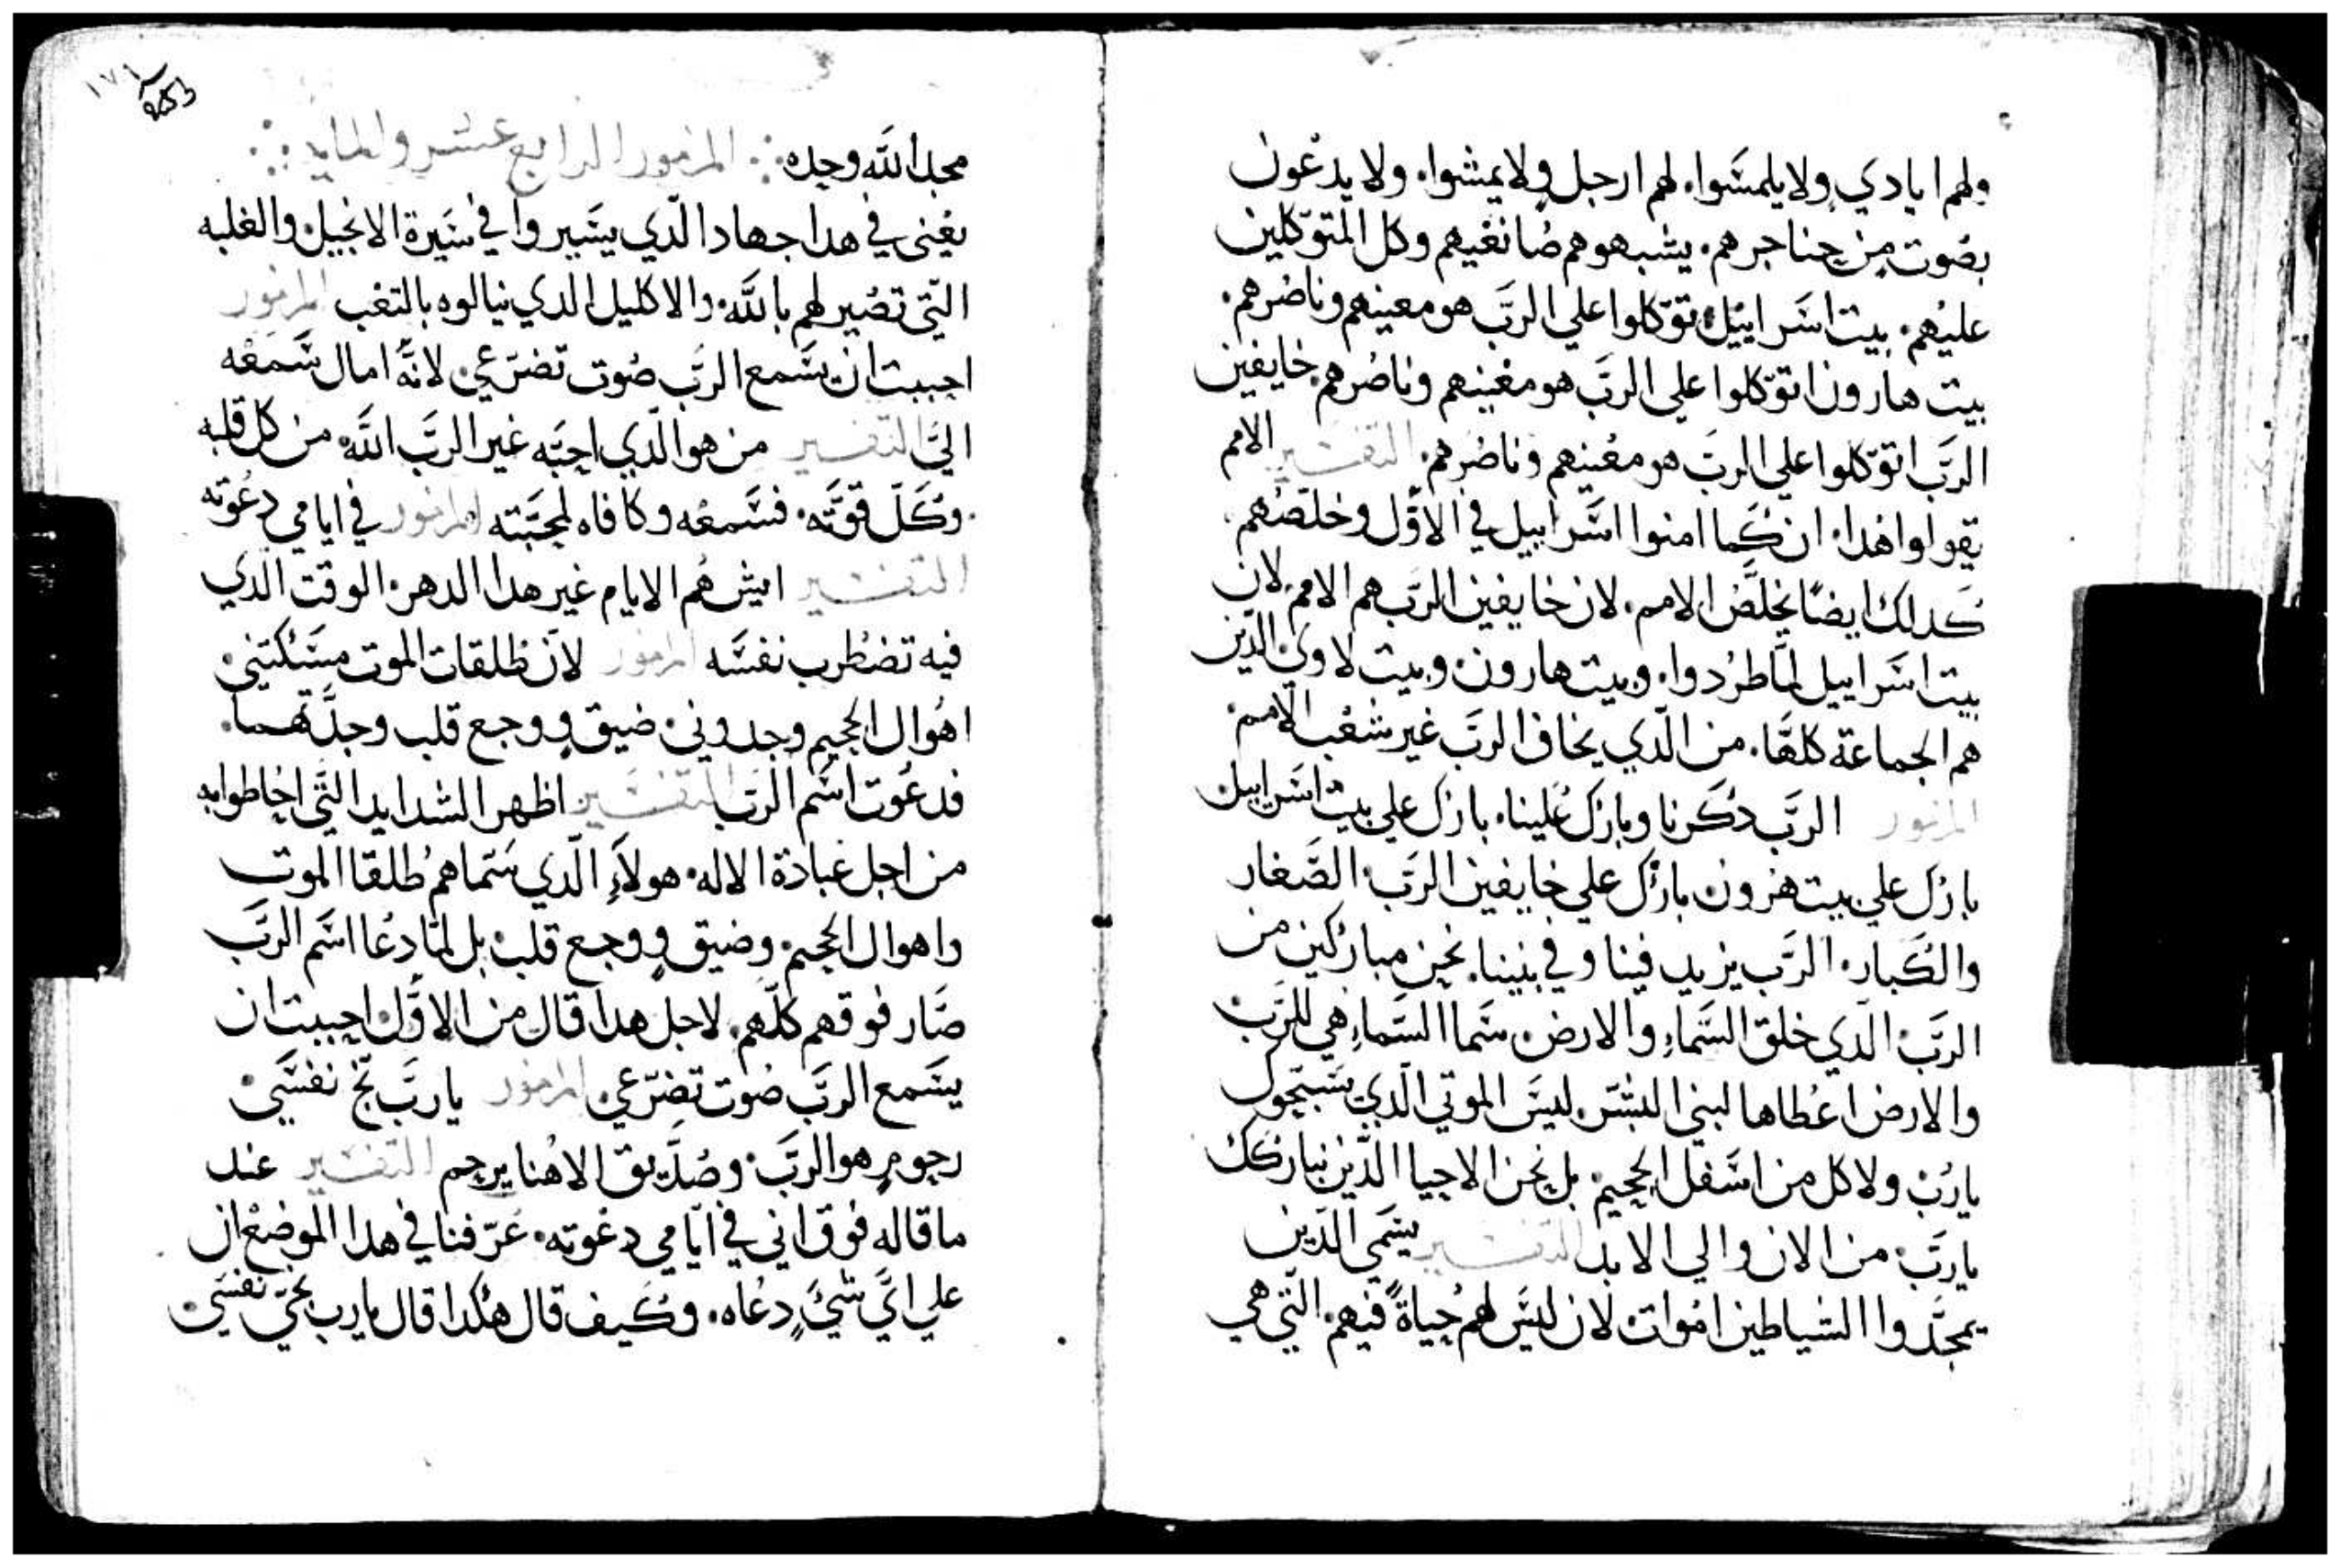 ولهم ايادي ولا يلمسوا. لهم ارجل ولا يمشوا. ولا يدعون
بصوت من حناجرهم. يشبهوهم صانعيهم وكل المتوكلين
عليهم. بيت اسراييل توكلوا علي الرب هو معينهم وناصرهم.
بيت هارون اتوكلوا علي الرب هو معينهم وناصرهم. خايفين
الرب اتوكلوا علي الرب هو معينهم وناصرهم. التفسير الامم
يقولوا هدا. ان كما امنوا اسراييل في الاول وخلصهم.
كدلك ايضا يخلص الامم. لان خايفين الرب هم الامم. لان
بيت اسراييل لما طردوا. وبيت هارون. وبيت لاوي الدين
هم الجماعة كلها. من الدي يخاف الرب غير شعب الامم.
المزمور الرب دكرنا وبارك علينا. بارك علي بيت اسراييل
بارك علي بيت هرون. بارك علي خايفين الرب. الصغار
والكبار. الرب يزيد فينا وفي بنينا. نحن مباركين من
الرب. الدي خلق السماء والارض سما السماء هي للرب.
والارض اعطاها لبني البشر. ليس الموتي الدي يسبحوك
يارب ولا كل من اسفل الجحيم. بل نحن الاحيا الدين نباركك
يارب. من الان والي الابد التفسير يسمي الدين
يمجدوا الشياطين اموات لان ليس لهم حياة فيهم. التي هي
١٧١
مجد الله وحده ∴ المزمور الرابع عشر والمايه ∴
يعني في هدا جهاد الدي يسيروا في سيرة الانجيل والغلبه
التي تصير لهم بالله. والاكليل الدي ينالوه بالتعب المزمور
احببت ان يسمع الرب صوت تضرعي. لانه امال سمعه
الي التفسير من هو الدي احبه غير الرب الله. من كل قلبه
وكل قوته. فسمعه وكافاه لمحبته المزمور في ايامي دعوته
التفسير ايش هم الايام غير هدا الدهر. الوقت الدي
فيه تضطرب نفسه المزمور لان طلقات الموت مسكتني.
اهوال الجحيم وجدوني. ضيق ووجع قلب وجدتهما.
فدعوت اسم الرب التفسير اظهر الشدايد التي احاطوا به
من اجل عبادة الاله. هولاء الدي سماهم طلقا الموت
واهوال الجحيم. وضيق ووجع قلب. بل لما دعا اسم الرب
صار فوقهم كلهم. لاجل هدا قال من الاول. احببت ان
يسمع الرب صوت تضرعي المزمور يارب نج نفسي.
رحوم هو الرب. وصديق الاهنا يرحم التفسير عند
ما قاله فوق اني في ايامي دعوته. عرفنا في هدا الموضع ان
علي اي شيء دعاه. وكيف قال هكدا قال يارب نجي نفسي.